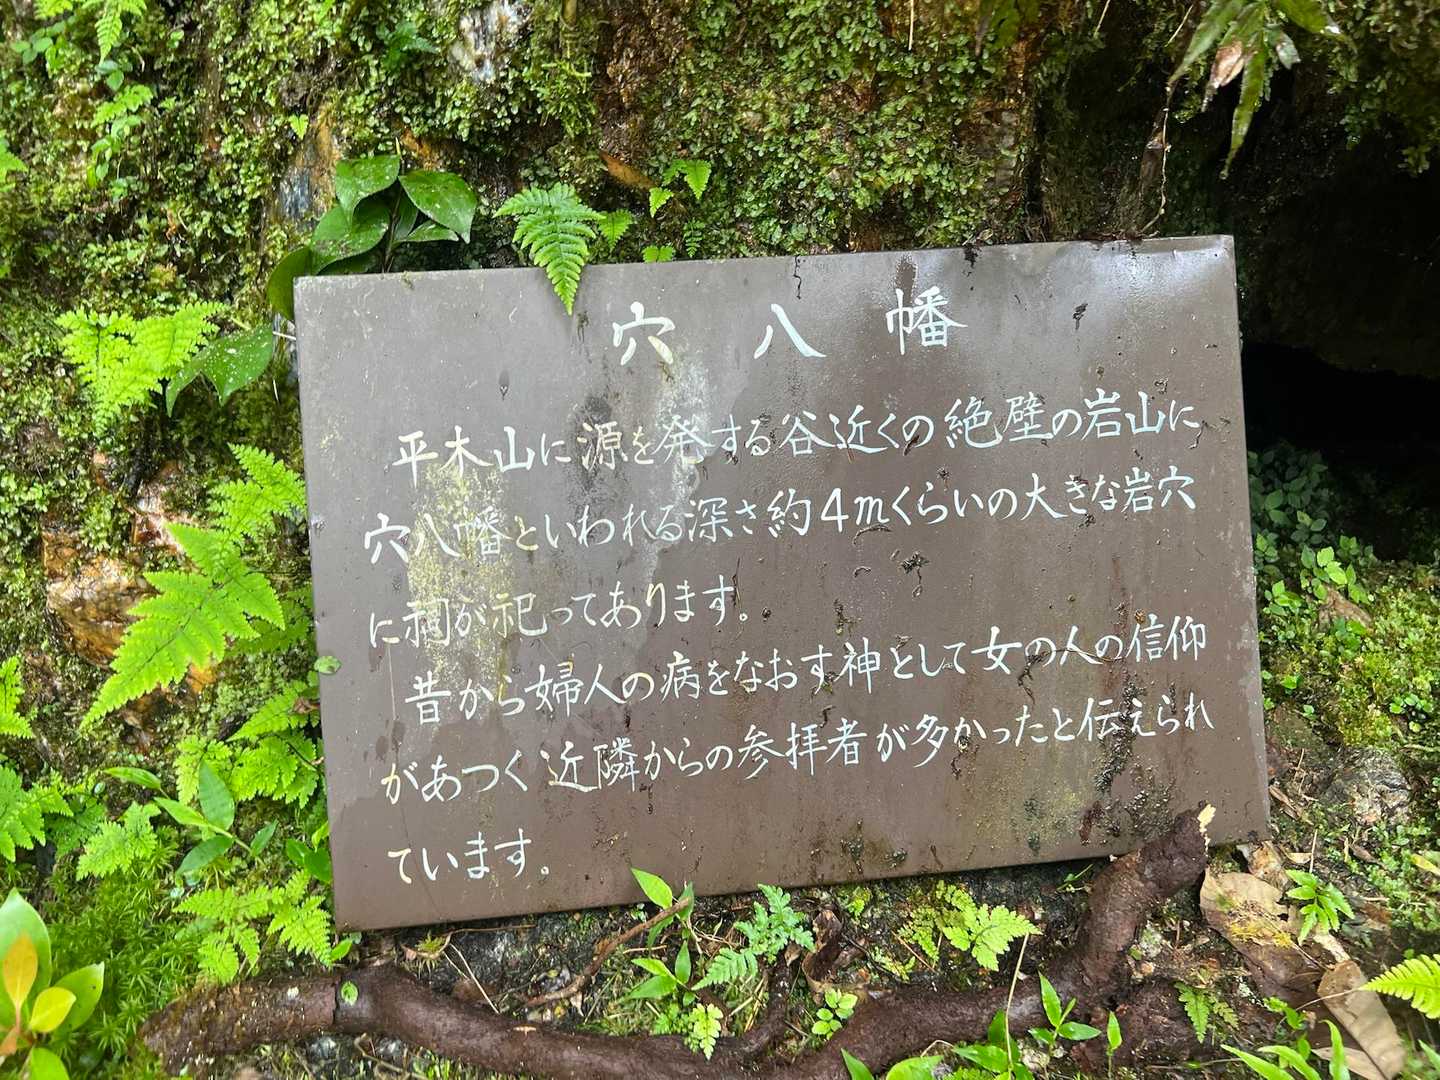 穴八幡
平木山に源を発する谷近くの絶壁の岩山に
穴八幡といわれる深さ約4mくらいの大きな岩穴
に祠が祀ってあります。
昔から婦人の病をなおす神として女の人の信仰
があつく近隣からの参拝者が多かったと伝えられ
ています。